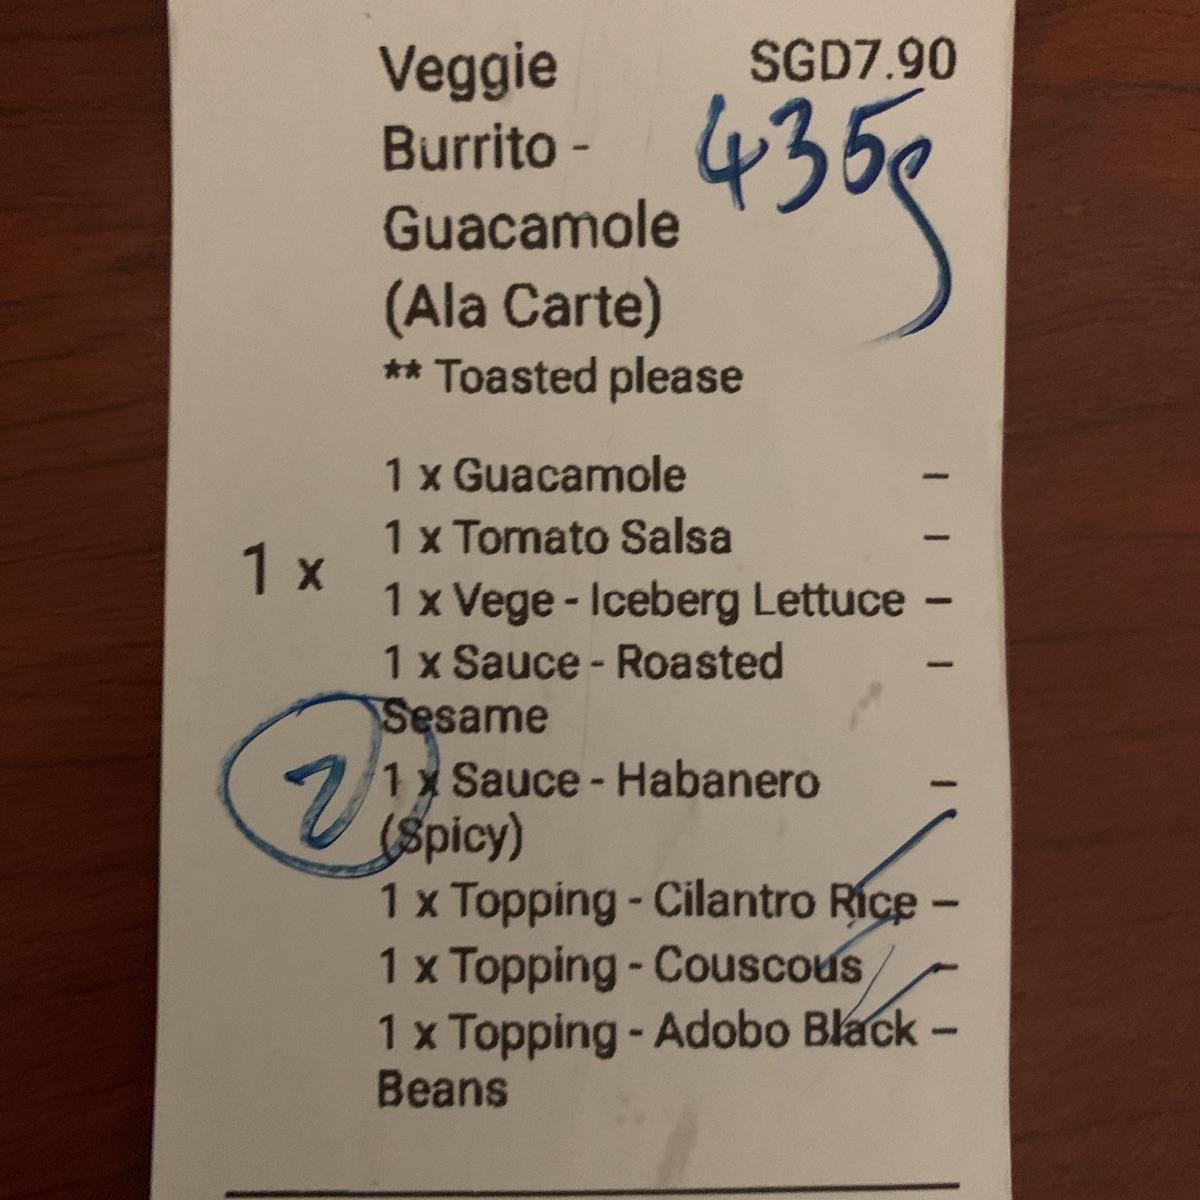 Veggie SGD7.90
Burrito - 435g
Guacamole
(Ala Carte)
** Toasted please
1 x Guacamole –
1 x Tomato Salsa –
1 x
1 x Vege - Iceberg Lettuce –
1 x Sauce - Roasted –
Sesame
2
1 x Sauce - Habanero –
(Spicy)
1 x Topping - Cilantro Rice –
1 x Topping - Couscous –
1 x Topping - Adobo Black –
Beans